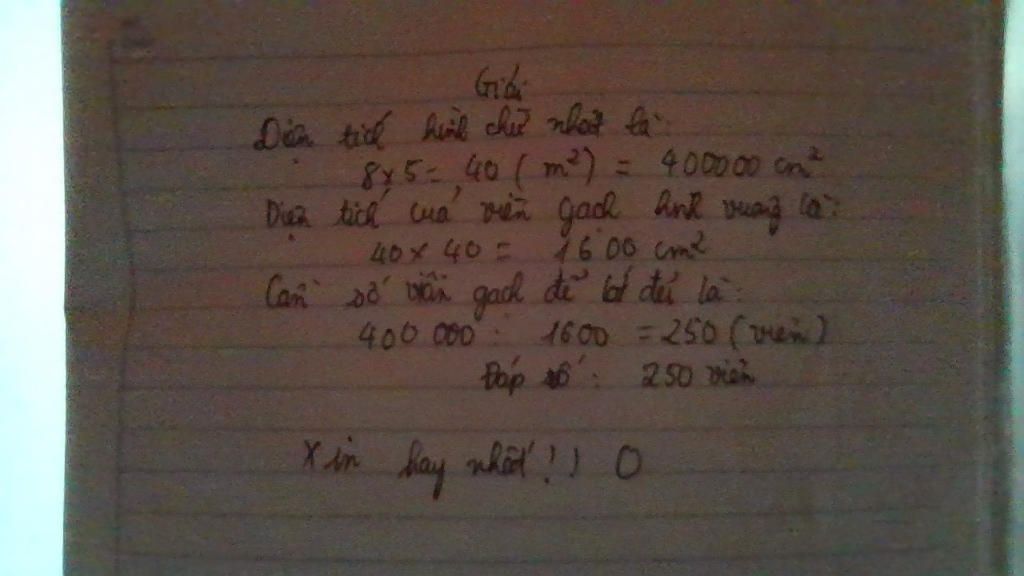 Giải
Diện tích hình chữ nhật là:
8 x 5 = 40 ( m² ) = 400000 cm²
Diện tích của viên gạch hình vuông là:
40 x 40 = 1600 cm²
Cần số viên gạch để lót đủ là:
400 000 : 1600 = 250 ( viên )
Đáp số : 250 viên
Xin hay nhất ! ) O